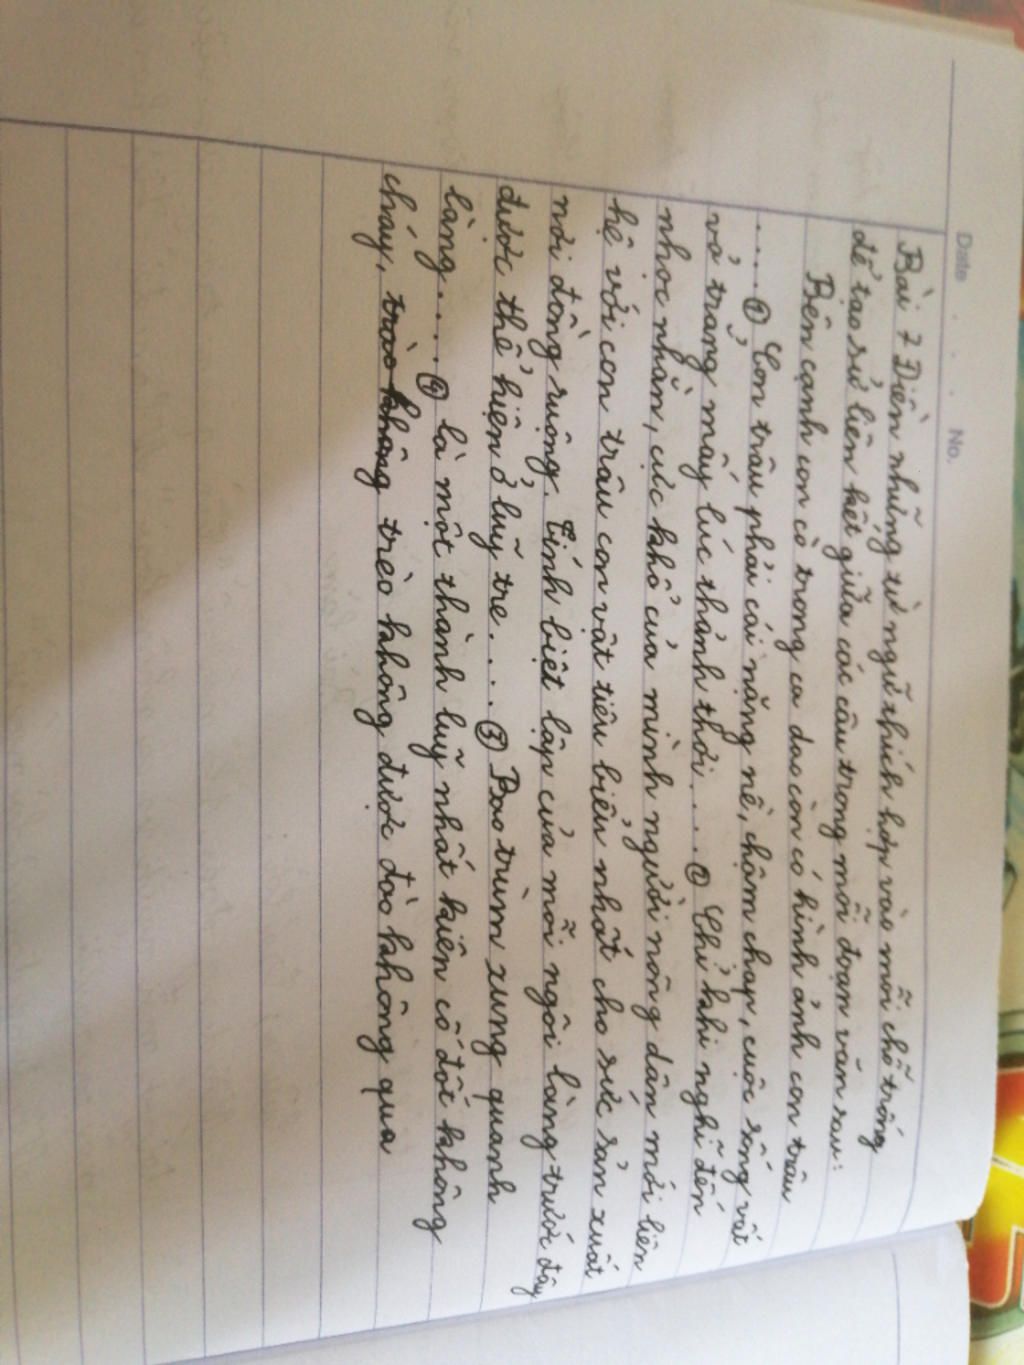 Date . . . . No.
Bài 7 Điền những từ ngữ thích hợp vào mỗi chỗ trống
để tạo sử liên kết giữa các câu trong mỗi đoạn văn sau:
Bên cạnh con cò trong ca dao còn có hình ảnh con trâu
.... ① Con trâu phải cái nặng nề, chậm chạp, cuộc sống vất
vả trẳng mấy lúc thảnh thơi.... ② Chỉ khi nghĩ đến
nhọc nhằn, cực khổ của mình người nông dân mới liên
hệ với con trâu con vật tiêu biểu nhất cho sức sản xuất
nơi đồng ruộng. Tính biệt lập của mỗi ngôi làng trước đây
được thể hiện ở luỹ tre.... ③ Bao trùm xung quanh
làng.... ④ là một thành luỹ nhất kiên cố đốt không
cháy, trèo không được đào không qua